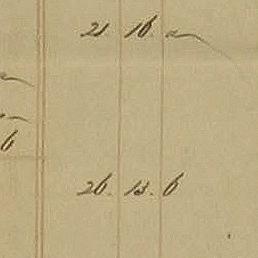 21. 16. a
6
26. 13. 6